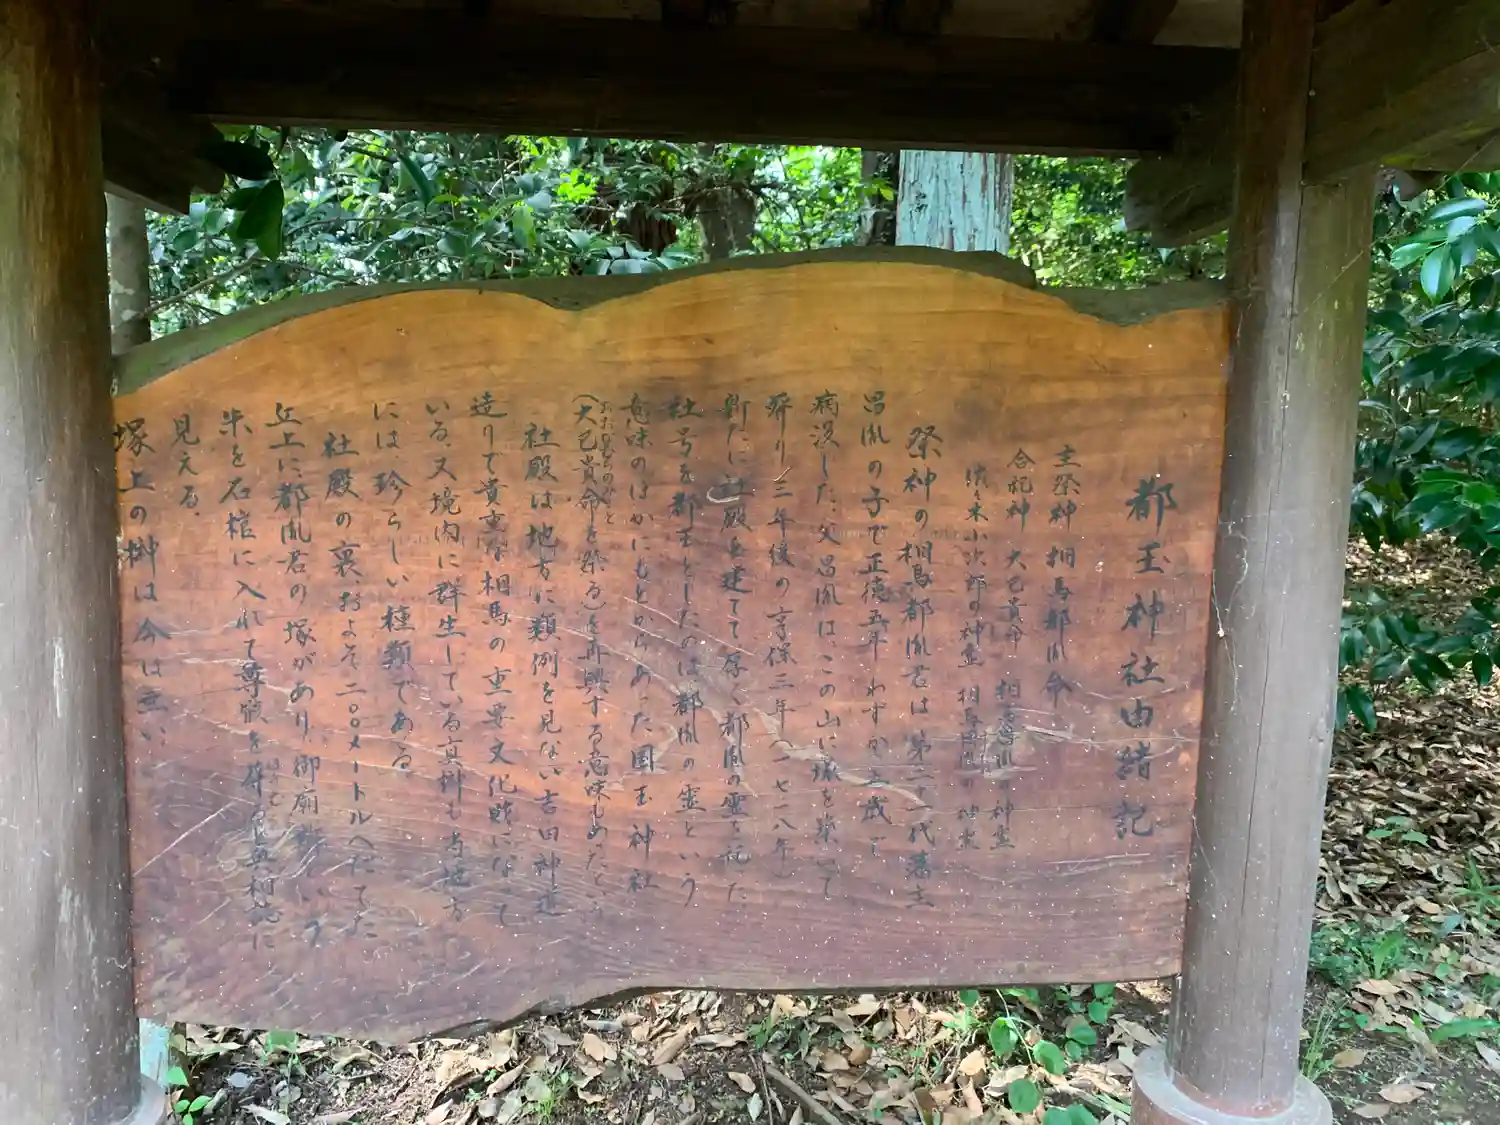 都玉神社由緒記
主祭神 相馬都胤命
合祀神 大己貴命 相馬尊胤の神霊
次々末小次郎の神霊 相馬昌胤の神霊
祭神の相馬都胤君は第二十一代藩主
昌胤の子で正徳五年わずか七歳で
病没した、父昌胤は、この山に塚を築いて
葬り三年後の享保三年(一七一八年)
新たに社殿を建てて厚く都胤の霊を祀った
社号を都玉としたのは都胤の霊という
意味のほかにもとからあった国玉神社
(大己貴命を祭る)を再興する意味もあったという
おおなむちのみこと
社殿は地方に類例を見ない吉田神道
造りで貴重な相馬の重要文化財になって
いる、又境内に群生している真榊も当地方
には珍らしい種類である
社殿の裏およそ二〇〇メートルへだてた
丘上に都胤君の塚があり、御廟
朱を石棺に入れて尊骸を葬り真相誌に
見える、
塚上の榊は今は無い、